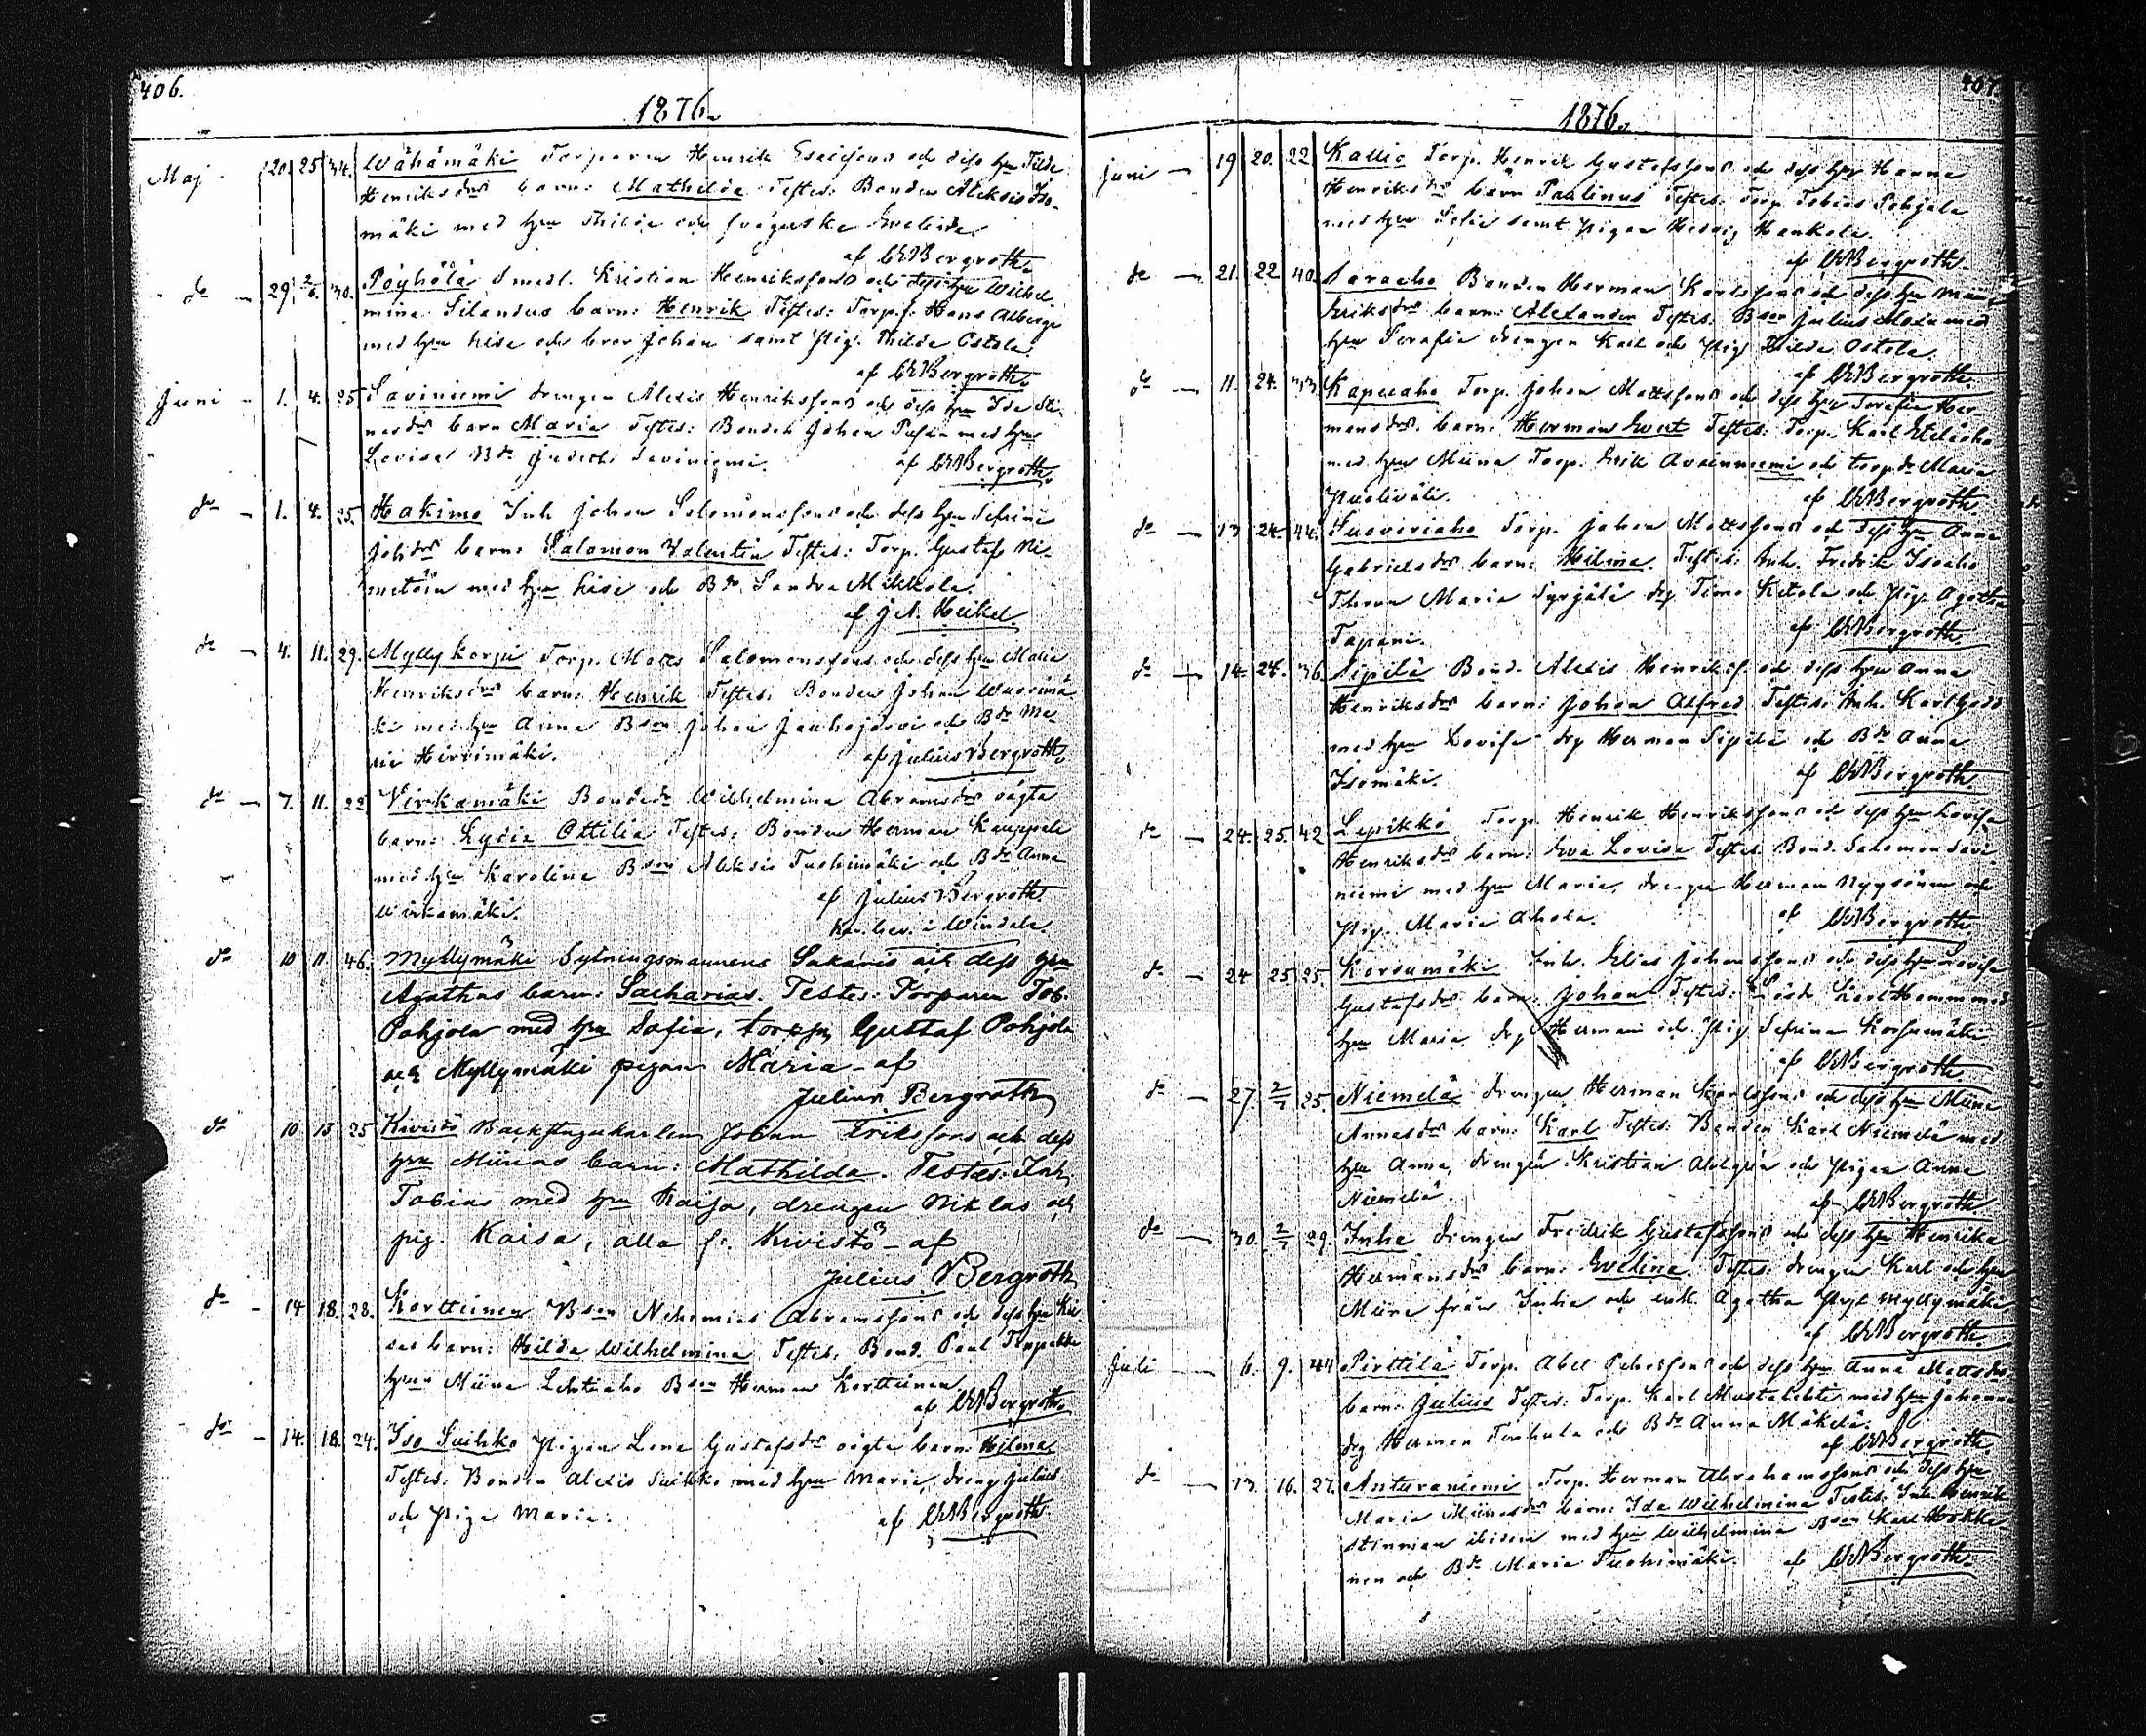 406.
1876.
Maj 20. 25 34. Wähämäki Torparen Henrik Esaissons och dess hru Tilda
Henriksdrs barn: Mathilda Testes: Bonden Aleksis Iso-
mäki med hru Thilda och Evelina.
af Bergroth.
do 29. 2/6. 30. Pöyhölä Kristian Henrikssons och dess hru Wilhel-
mina Silandus barn: Henrik Testes: Torp. Hans Alberga
med hru Lisa och bror Johan samt pig. Thilda Ostola.
af Bergroth.
Juni 1. 4. 25 Saviniemi drengen Alexis Henrikssons och dess hru Ida
barn Maria Testes: Bonden Johan med hru
Lovisa Bdr Judith Saviniemi. af Bergroth.
do 1. 4. 25. Hakimo Inh. Johan Salomonssons och dess hru Sefrina
Johdrs barn: Salomon Valentin Testes: Torp. Gustaf Ni-
metöin med hru Lisa och Bdr Sandra Mikkola.
af J. A. Heikel
do 4. 11. 29. Myllykorpi Torp. Matts Salomonssons och dess hru Maria
Henriksdrs barn: Henrik Testes: Bonden Johan Wuorimä
ki med hru Anna Bson Johan Jauhojärvi och Bdr Ma-
ria Hirvimäki. af Julius Bergroth
do 7. 11. 22 Virkamäki Bondedr Wilhelmina Abramsdrs oägta
barn: Lydia Ottilia Testes: Bonden Herman Kauppala
med hru Karolina Bson Aleksis Tuohimäki och Bdr Anna
Wirkamäki. af Julius Bergroth.
Kar. bev. i Windala.
do 10 11. 46. Myllymäki Sytningsmannens Sakaris och dess hru
Agathas barn: Sacharias. Testes: Torparen Tob.
Pohjola med hru Sofia, Gustaf Pohjola
och Myllymäki pigan Maria - af
Julius Bergroth
do 10 15 25 Kivistö Backstugukarlen Johan Erikssons och dess
hru Miinas barn: Mathilda. Testes: Inh.
Tobias med hru Kaisa, drengen Niklas och
pig. Kaisa, alla fr. Kivistö - af
Julius Bergroth
do 14 18. 28. Kortteinen Bson Nehemias Abramssons och dess hru
barn: Hilda Wilhelmina Testes. Bond. Paul
hru Miina Lehtiaho Bson Herman Kortteinen
af Bergroth.
do 14. 18. 24. Iso Suihko pigan Lena Gustafsdrs oägta barn: Hilma
Testes: Bonden Alexis Suihko med hru Maria, dreng Julius
och piga Maria. af Bergroth.
407.
1876.
Juni 19 20. 22. Kallio Torp. Henrik Gustafssons och dess hru Hanna
Henriksdrs barn Paulinus Testes: Torp Tobias Pohjola
med hru Sofia samt pigan Hedvig Hankola.
af Bergroth.
do 21. 22 40. Bonden Herman Karlssons och dess hru
Eriksdrs barn: Alexander Testes: Bson Julius med
hru Serafia drengen Karl och pig. Hilda Ostola.
af Bergroth.
do 11. 24. 33 Torp. Johan Mattssons och dess hru Serafia Her-
mansdrs barn: Herman Evert Testes: Torp. Karl Eteläaho
med hru Miina Torp. Erik och torpdr Maria
Puoliväli. af Bergroth
do 13 24. 44. Torp. Johan Mattssons och dess hru Anna
Gabrielsdrs barn: Hilma. Testes: Inh. Fredrik Isoaho
Maria Syrjälä drg Timo Ketola och pig. Agatha
Tapani. af Bergroth.
do 14. 24. 36 Sipilä Bond. Alexis Henrikss. och dess hru Anna
Henriksdrs barn: Johan Alfred Testes: Inh. Karl
med hru Lovisa drg Herman Sipilä och Bdr Anna
Isomäki. af Bergroth.
do 24. 25. 42 Lepikkö Torp. Henrik Henrikssons och dess hru Lovisa
Henriksdrs barn: Eva Lovisa Testes Bond. Salomon Savi
niemi med hru Maria, drengen Herman och
pig. Maria Ahola. af Bergroth
do 24 25 25. Korsumäki Inh. Elias Johanssons och dess hru Lovisa
Gustafsdrs barn: Johan Testes: Karl Hamm med
hru Maria, drg Herman och pig Sefrina Korsumäki
af Bergroth
do 27. 2/7 25. Niemelä drengen Herman Karlssons och dess hru Miina
Annasdrs barn: Karl Testes: Bonden Karl Niemelä med
hru Anna, drengen Kristian och pigan Anna
Niemelä. af Bergroth
do 30. 2/7 29. Inha drengen Fredrik Gustafssons och dess hru Henrika
Hermansdrs barn: Evelina. Testes: drengen Karl och hru
Miina från Inha och enk. Agatha Myllymäki
af Bergroth.
Juli 6. 9. 44 Pirttilä Torp. Abel och dess hru Anna Mattsdrs
barn: Julius Testes: Torp. Karl Mustalahti med hru Johanna
drg Herman och Bdr Anna Mäkelä.
af Bergroth
do 13. 16. 27. Anturaniemi Torp. Herman Abrahamssons och dess hru
Maria Miinasdrs barn: Ida Wilhelmina Testes: Inh. Henrik
ibidem med hru Wilhelmina Bson Karl Hokka-
nen och Bdr Maria Tuohimäki. af Bergroth.